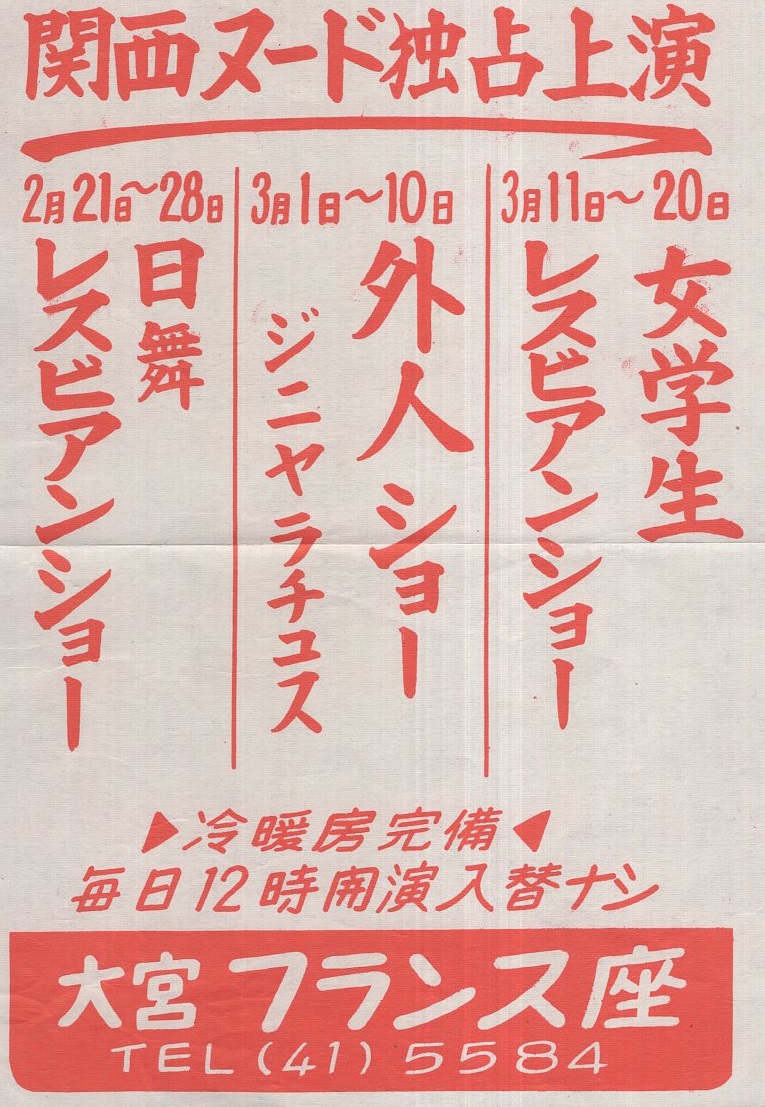 関西ヌード独占上演
2月21日〜28日
日舞
レスビアンショー
3月1日〜10日
外人ショー
ジニヤラチュス
3月11日〜20日
女学生
レスビアンショー
▶冷暖房完備◀
毎日12時開演入替ナシ
大宮フランス座
TEL(41)5584